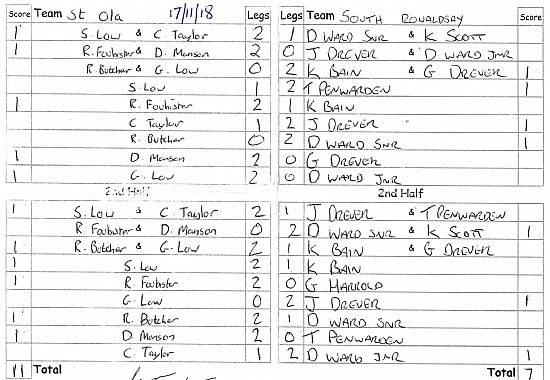 Score Team St Ola 17/11/18 Legs Legs Team South Ronaldsay Score
1 S. Low & C. Taylor 2 1 D Ward Snr & K Scott
1 R. Foubister & D. Manson 2 0 J Drever & D Ward Jnr
R. Butcher & G. Low 0 2 K Bain & G Drever 1
S. Low 1 2 T Penwarden 1
1 R. Foubister 2 1 K Bain
C. Taylor 1 2 J Drever 1
R. Butcher 0 2 D Ward Snr 1
1 D. Manson 2 0 G Drever
1 G. Low 2 0 D Ward Jnr
2nd Half 2nd Half
1 S. Low & C. Taylor 2 1 J Drever & T Penwarden
R. Foubister & D. Manson 0 2 D Ward Snr & K Scott 1
1 R. Butcher & G. Low 2 1 K Bain & G Drever
1 S. Low 2 1 K Bain
1 R. Foubister 2 0 G Harrold
G. Low 0 2 J Drever 1
1 R. Butcher 2 1 D Ward Snr
1 D. Manson 2 0 T Penwarden
C. Taylor 1 2 D Ward Jnr 1
11 Total Total 7